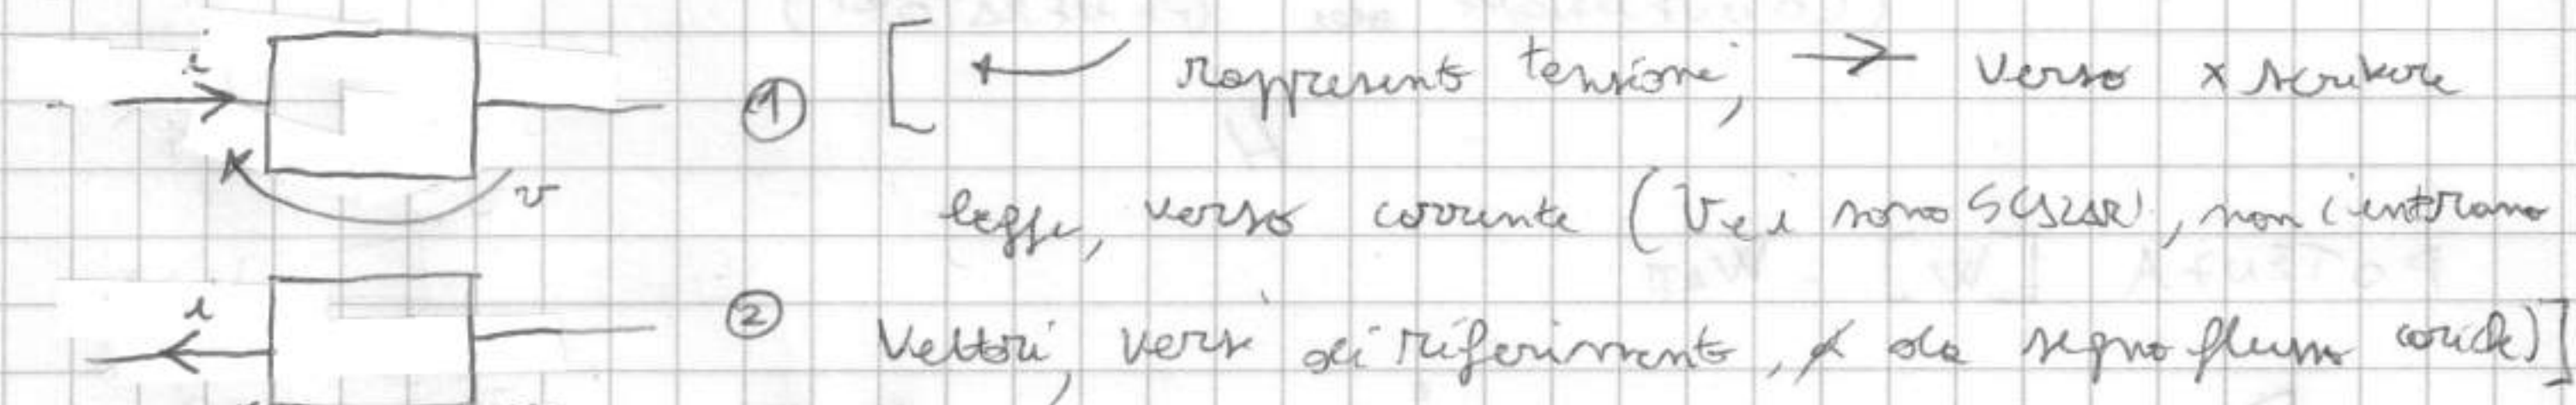 i
① [ ← rappresenta tensione, → verso x scrivere
v
legge, verso corrente (V e i sono SCALARI, non c'entrano
i
② Vettori, versi di riferimento, da segno flusso cariche)]